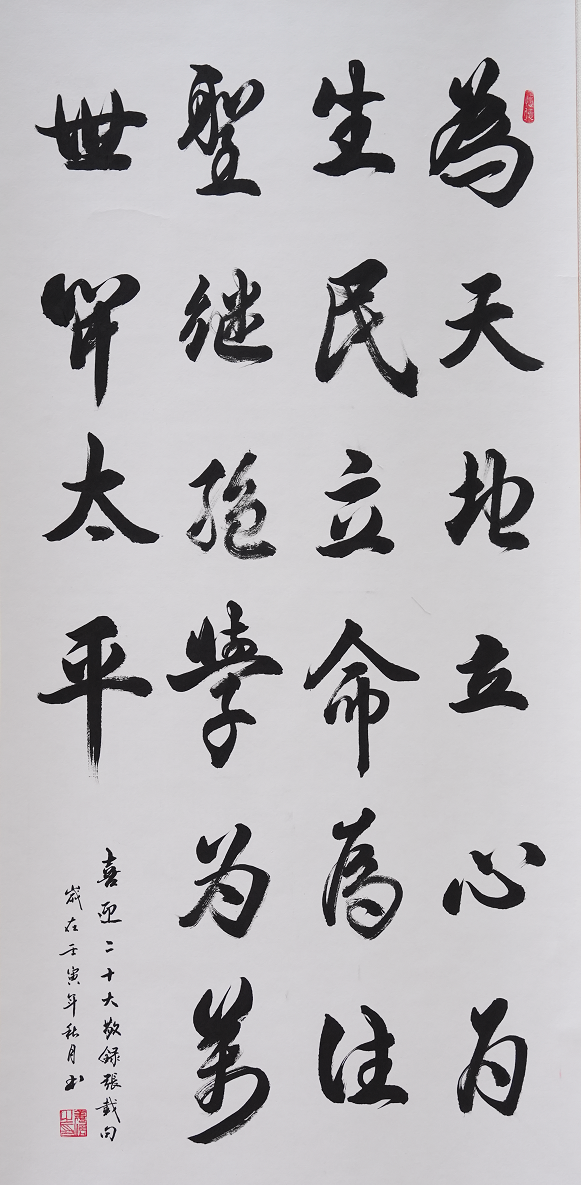 為天地立心为
生民立命為往
聖继绝學为万
世開太平
喜迎二十大敬録張載句
歲在壬寅年秋月书